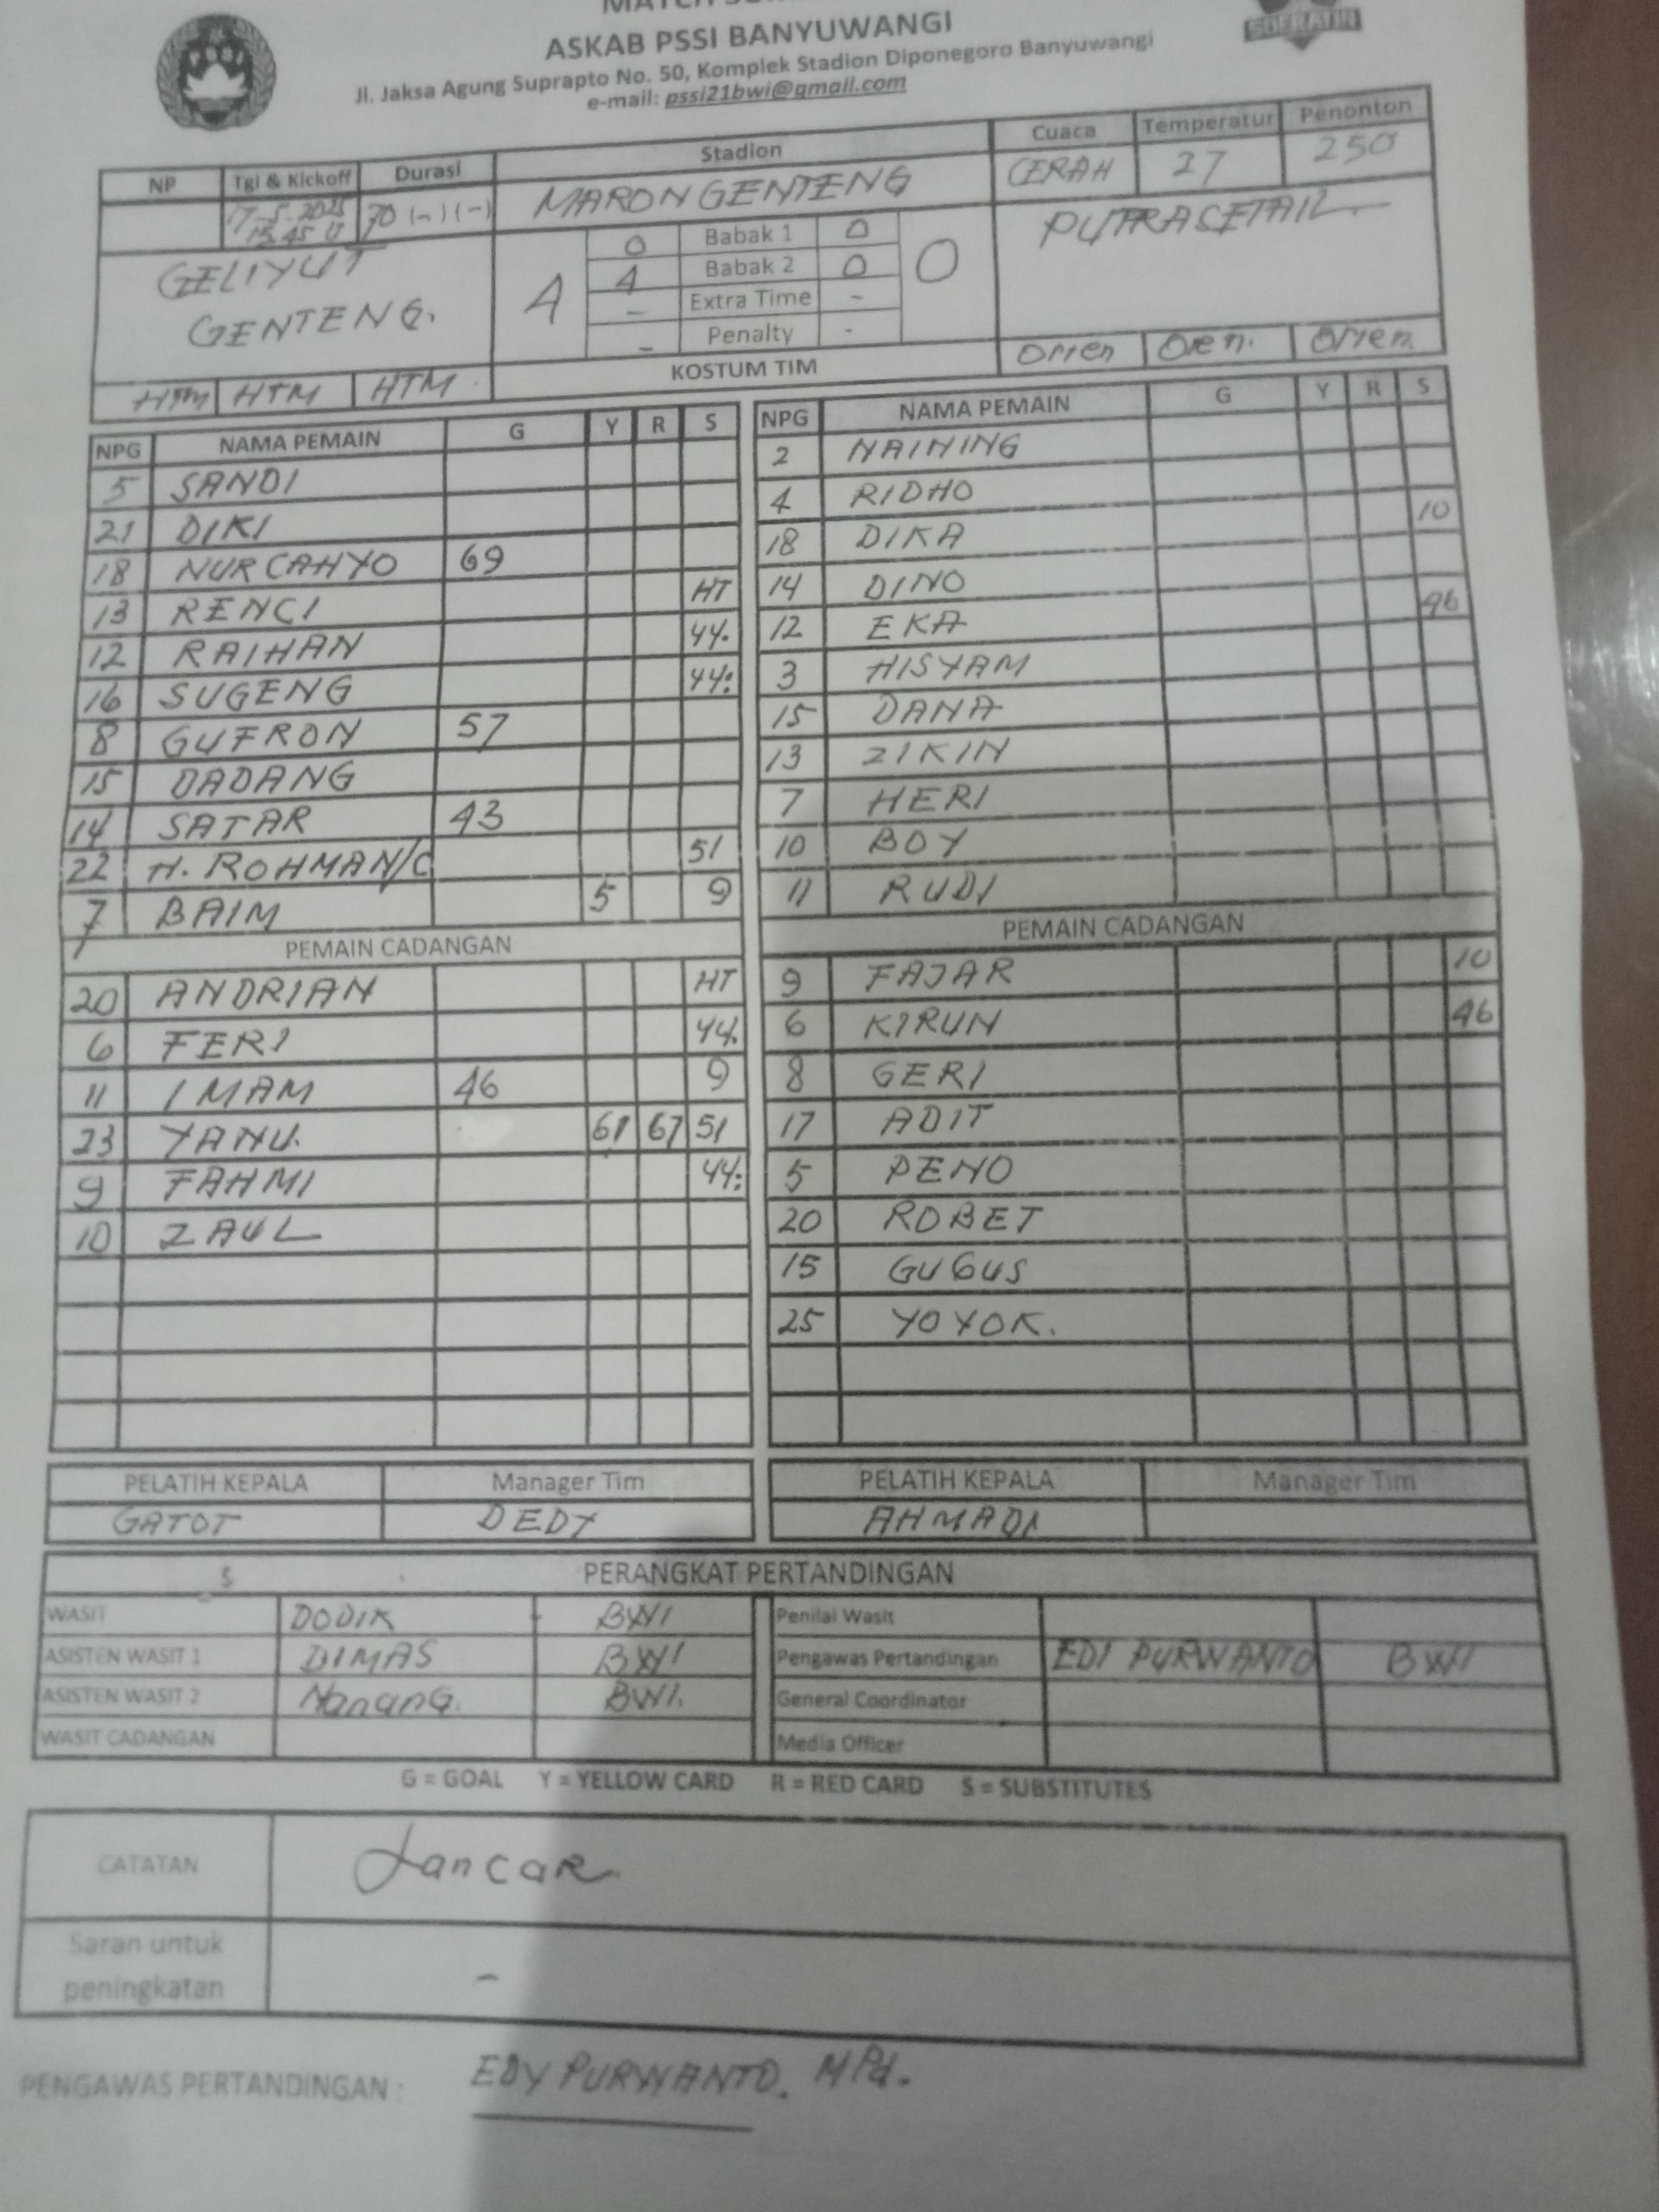 ASKAB PSSI BANYUWANGI
Jl. Jaksa Agung Suprapto No. 50, Komplek Stadion Diponegoro Banyuwangi
e-mail: pssi21bwi@gmail.com
NP Tgl & Kickoff Durasi Stadion Cuaca Temperatur Penonton
17-5-2025 15.45 70 (-) (-) MARON GENTENG CERAH 27 250
GELIYUT GENTENG. 4 0 PUTRA SETAIL
0 Babak 1 0
4 Babak 2 0
- Extra Time -
- Penalty -
HTM HTM HTM KOSTUM TIM Orren Oren. Orren.
NPG NAMA PEMAIN G Y R S NPG NAMA PEMAIN G Y R S
5 SANDI 2 NAINING
21 DIKI 4 RIDHO
18 NURCAHYO 69 18 DIKA 10
13 RENCI HT 14 DINO
12 RAIHAN 44. 12 EKA 46
16 SUGENG 44: 3 HISYAM
8 GUFRON 57 15 DANA
15 DADANG 13 ZIKIN
14 SATAR 43 7 HERI
22 H. ROHMAN/C 51 10 BOY
7 BAIM 5 9 11 RUDI
PEMAIN CADANGAN PEMAIN CADANGAN
20 ANDRIAN HT 9 FAJAR 10
6 FERI 44. 6 KIRUN 46
11 IMAM 46 9 8 GERI
23 YANU. 61 67 51 17 ADIT
9 FAHMI 44: 5 PENO
10 ZAUL 20 ROBET
15 GUGUS
25 YOYOK.
PELATIH KEPALA Manager Tim PELATIH KEPALA Manager Tim
GATOT DEDY AHMADI
PERANGKAT PERTANDINGAN
WASIT DODIK - BWI Penilai Wasit
ASISTEN WASIT 1 DIMAS BWI Pengawas Pertandingan EDI PURWANTO BWI
ASISTEN WASIT 2 NananG. BWI. General Coordinator
WASIT CADANGAN Media Officer
G = GOAL Y = YELLOW CARD R = RED CARD S = SUBSTITUTES
CATATAN Lancar
Saran untuk peningkatan -
PENGAWAS PERTANDINGAN : EDY PURWANTO. MPd.